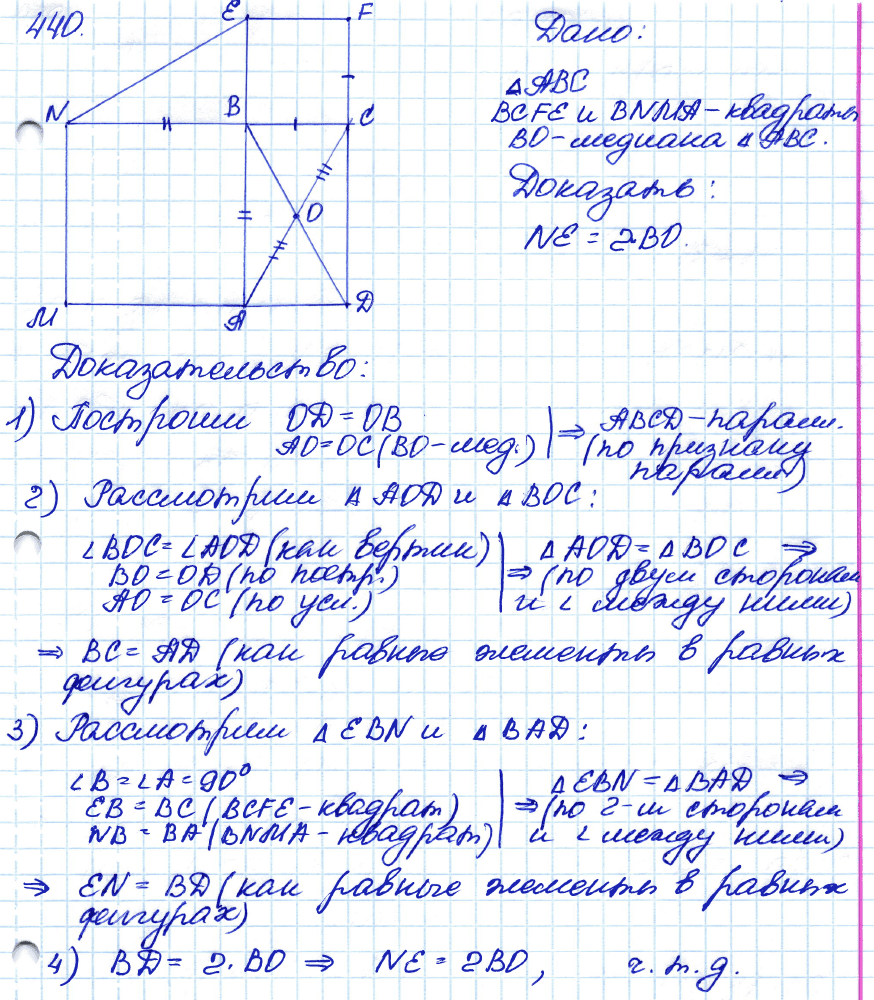 440.
E F
N B C
O
M A D
Дано:
△ABC
BCFE и BNMA – квадраты
BO – медиана △ABC.
Доказать:
NE = 2·BO.
Доказательство:
1) Построим OD = OB
AO = OC (BO – мед.)
⇒ ABCD – парал.
(по признаку
парал.)
2) Рассмотрим △AOD и △BOC:
∠BOC = ∠AOD (как вертик)
BO = OD (по постр.)
AO = OC (по усл.)
△AOD = △BOC ⇒
⇒ (по двум сторонам
и ∠ между ними)
⇒ BC = AD (как равные элементы в равных
фигурах)
3) Рассмотрим △EBN и △BAD:
∠B = ∠A = 90°
EB = BC (BCFE – квадрат)
NB = BA (BNMA – квадрат)
△EBN = △BAD ⇒
⇒ (по 2-м сторонам
и ∠ между ними)
⇒ EN = BD (как равные элементы в равных
фигурах)
4) BD = 2·BO ⇒ NE = 2BO, ч.т.д.